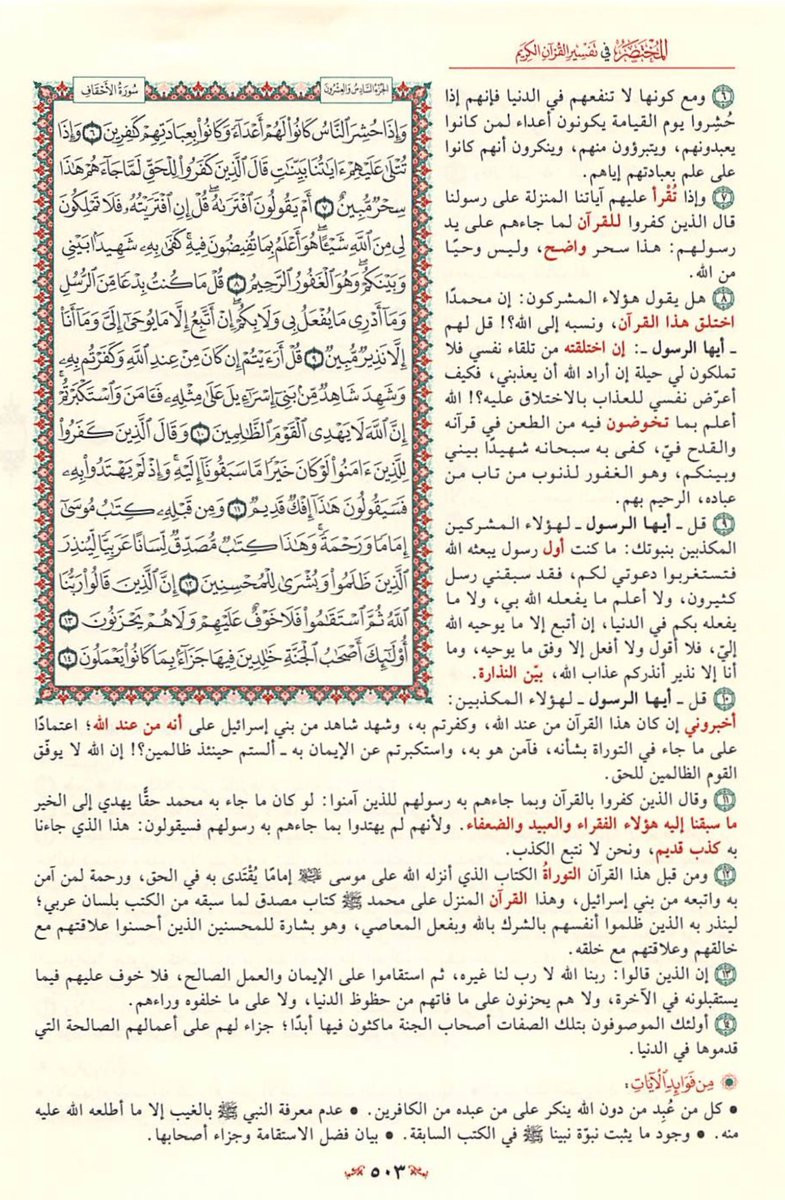 المختصر في تفسير القرآن الكريم
الجزء السادس والعشرون
سورة الأحقاف
وَإِذَا حُشِرَ ٱلنَّاسُ كَانُواْ لَهُمۡ أَعۡدَآءٗ وَكَانُواْ بِعِبَادَتِهِمۡ كَٰفِرِينَ ٦ وَإِذَا
تُتۡلَىٰ عَلَيۡهِمۡ ءَايَٰتُنَا بَيِّنَٰتٖ قَالَ ٱلَّذِينَ كَفَرُواْ لِلۡحَقِّ لَمَّا جَآءَهُمۡ هَٰذَا
سِحۡرٞ مُّبِينٌ ٧ أَمۡ يَقُولُونَ ٱفۡتَرَىٰهُۖ قُلۡ إِنِ ٱفۡتَرَيۡتُهُۥ فَلَا تَمۡلِكُونَ
لِي مِنَ ٱللَّهِ شَيۡـًٔاۖ هُوَ أَعۡلَمُ بِمَا تُفِيضُونَ فِيهِۚ كَفَىٰ بِهِۦ شَهِيدَۢا بَيۡنِي
وَبَيۡنَكُمۡۖ وَهُوَ ٱلۡغَفُورُ ٱلرَّحِيمُ ٨ قُلۡ مَا كُنتُ بِدۡعٗا مِّنَ ٱلرُّسُلِ
وَمَآ أَدۡرِي مَا يُفۡعَلُ بِي وَلَا بِكُمۡۖ إِنۡ أَتَّبِعُ إِلَّا مَا يُوحَىٰٓ إِلَيَّ وَمَآ أَنَا۠
إِلَّا نَذِيرٞ مُّبِينٞ ٩ قُلۡ أَرَءَيۡتُمۡ إِن كَانَ مِنۡ عِندِ ٱللَّهِ وَكَفَرۡتُم بِهِۦ
وَشَهِدَ شَاهِدٞ مِّنۢ بَنِيٓ إِسۡرَٰٓءِيلَ عَلَىٰ مِثۡلِهِۦ فَـَٔامَنَ وَٱسۡتَكۡبَرۡتُمۡۚ
إِنَّ ٱللَّهَ لَا يَهۡدِي ٱلۡقَوۡمَ ٱلظَّٰلِمِينَ ١٠ وَقَالَ ٱلَّذِينَ كَفَرُواْ
لِلَّذِينَ ءَامَنُواْ لَوۡ كَانَ خَيۡرٗا مَّا سَبَقُونَآ إِلَيۡهِۚ وَإِذۡ لَمۡ يَهۡتَدُواْ بِهِۦ
فَسَيَقُولُونَ هَٰذَآ إِفۡكٞ قَدِيمٞ ١١ وَمِن قَبۡلِهِۦ كِتَٰبُ مُوسَىٰٓ
إِمَامٗا وَرَحۡمَةٗۚ وَهَٰذَا كِتَٰبٞ مُّصَدِّقٞ لِّسَانًا عَرَبِيّٗا لِّيُنذِرَ
ٱلَّذِينَ ظَلَمُواْ وَبُشۡرَىٰ لِلۡمُحۡسِنِينَ ١٢ إِنَّ ٱلَّذِينَ قَالُواْ رَبُّنَا
ٱللَّهُ ثُمَّ ٱسۡتَقَٰمُواْ فَلَا خَوۡفٌ عَلَيۡهِمۡ وَلَا هُمۡ يَحۡزَنُونَ ١٣
أُوْلَٰٓئِكَ أَصۡحَٰبُ ٱلۡجَنَّةِ خَٰلِدِينَ فِيهَا جَزَآءَۢ بِمَا كَانُواْ يَعۡمَلُونَ ١٤
٦ ومع كونها لا تنفعهم في الدنيا فإنهم إذا
حُشِروا يوم القيامة يكونون أعداء لمن كانوا
يعبدونهم، ويتبرؤون منهم، وينكرون أنهم كانوا
على علم بعبادتهم إياهم.
٧ وإذا تُقْرأ عليهم آياتنا المنزلة على رسولنا
قال الذين كفروا للقرآن لما جاءهم على يد
رسولهم: هذا سحر واضح، وليس وحيًا
من الله.
٨ هل يقول هؤلاء المشركون: إن محمدًا
اختلق هذا القرآن، ونسبه إلى الله؟! قل لهم
ـ أيها الرسول ـ: إن اختلقته من تلقاء نفسي فلا
تملكون لي حيلة إن أراد الله أن يعذبني، فكيف
أعرّض نفسي للعذاب بالاختلاق عليه؟! الله
أعلم بما تخوضون فيه من الطعن في قرآنه
والقدح فيّ، كفى به سبحانه شهيدًا بيني
وبينكم، وهو الغفور لذنوب من تاب من
عباده، الرحيم بهم.
٩ قل ـ أيها الرسول ـ لهؤلاء المشركين
المكذبين بنبوتك: ما كنت أول رسول يبعثه الله
فتستغربوا دعوتي لكم، فقد سبقني رسل
كثيرون، ولا أعلم ما يفعله الله بي، ولا ما
يفعله بكم في الدنيا، إن أتبع إلا ما يوحيه الله
إليّ، فلا أقول ولا أفعل إلا وفق ما يوحيه، وما
أنا إلا نذير أنذركم عذاب الله، بيّن النذارة.
١٠ قل ـ أيها الرسول ـ لهؤلاء المكذبين:
أخبروني إن كان هذا القرآن من عند الله، وكفرتم به، وشهد شاهد من بني إسرائيل على أنه من عند الله؛ اعتمادًا
على ما جاء في التوراة بشأنه، فآمن هو به، واستكبرتم عن الإيمان به ـ ألستم حينئذ ظالمين؟! إن الله لا يوفّق
القوم الظالمين للحق.
١١ وقال الذين كفروا بالقرآن وبما جاءهم به رسولهم للذين آمنوا: لو كان ما جاء به محمد حقًّا يهدي إلى الخير
ما سبقنا إليه هؤلاء الفقراء والعبيد والضعفاء. ولأنهم لم يهتدوا بما جاءهم به رسولهم فسيقولون: هذا الذي جاءنا
به كذب قديم، ونحن لا نتبع الكذب.
١٢ ومن قبل هذا القرآن التوراةُ الكتاب الذي أنزله الله على موسى عليه السلام إمامًا يُقْتَدى به في الحق، ورحمة لمن آمن
به واتبعه من بني إسرائيل، وهذا القرآن المنزل على محمد ﷺ كتاب مصدق لما سبقه من الكتب بلسان عربي؛
لينذر به الذين ظلموا أنفسهم بالشرك بالله وبفعل المعاصي، وهو بشارة للمحسنين الذين أحسنوا علاقتهم مع
خالقهم وعلاقتهم مع خلقه.
١٣ إن الذين قالوا: ربنا الله لا رب لنا غيره، ثم استقاموا على الإيمان والعمل الصالح، فلا خوف عليهم فيما
يستقبلونه في الآخرة، ولا هم يحزنون على ما فاتهم من حظوظ الدنيا، ولا على ما خلفوه وراءهم.
١٤ أولئك الموصوفون بتلك الصفات أصحاب الجنة ماكثون فيها أبدًا؛ جزاء لهم على أعمالهم الصالحة التي
قدموها في الدنيا.
من فوائد الآيات:
• كل من عُبِد من دون الله ينكر على من عبده من الكافرين. • عدم معرفة النبي ﷺ بالغيب إلا ما أطلعه الله عليه
منه. • وجود ما يثبت نبوّة نبينا ﷺ في الكتب السابقة. • بيان فضل الاستقامة وجزاء أصحابها.
٥٠٣